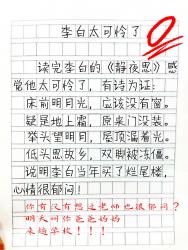 李白太可怜了
读完李白的《静夜思》感
觉他太可怜了，有诗为证：
床前明月光，应该没有窗。
疑是地上霜，原来门没装。
举头望明月，屋顶漏着光。
低头思故乡，双脚被冻僵。
说明李白当年买了烂尾楼，
心情很郁闷！
你有没有想过老师也很郁闷？
明天叫你爸爸妈妈
来趟学校！！！